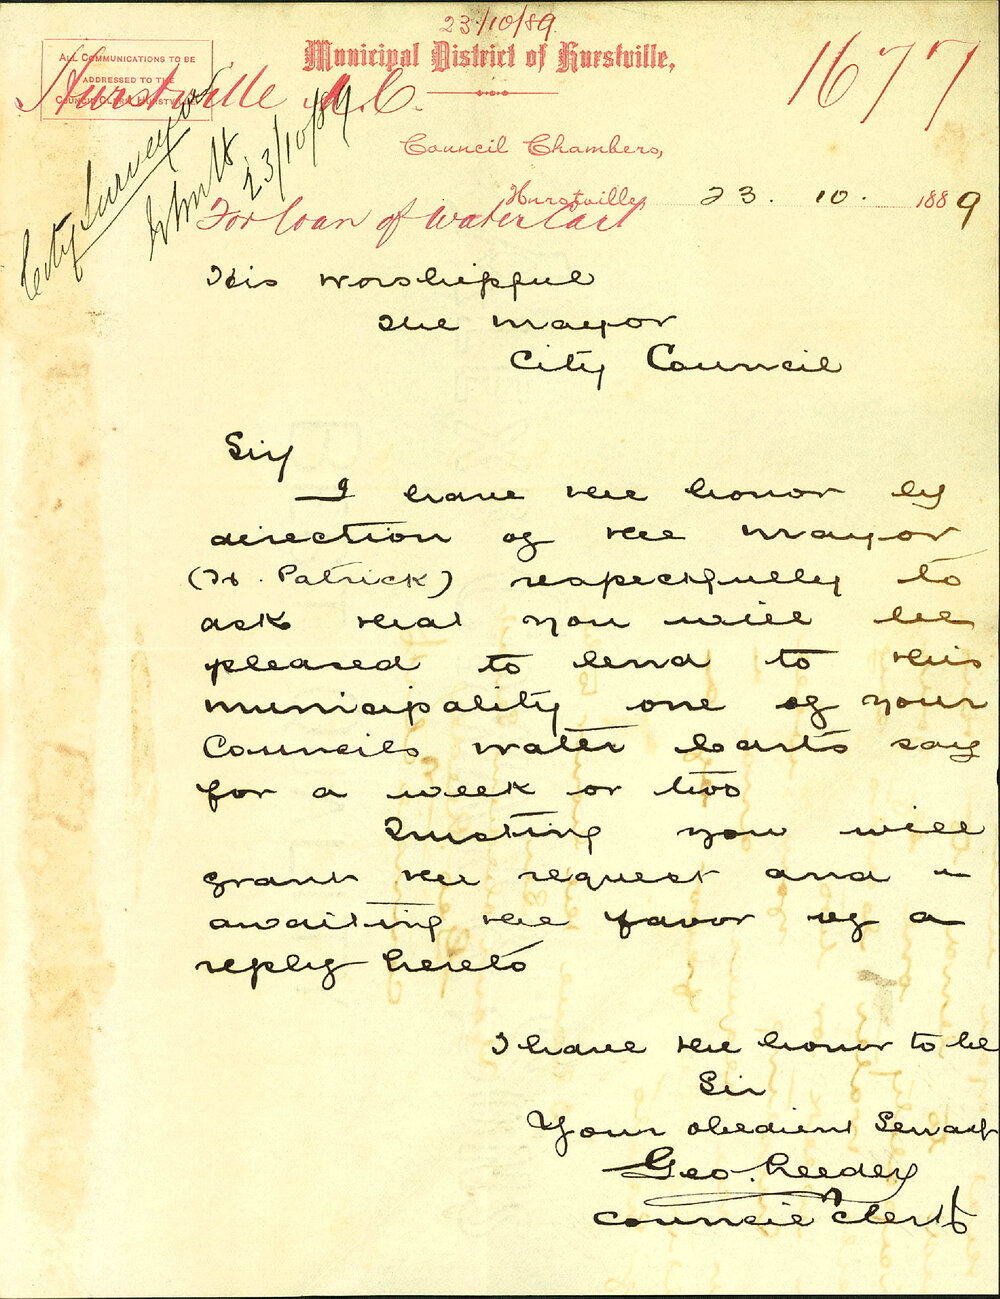 23/10/89
Municipal District of Hurstville,
ALL COMMUNICATIONS TO BE
ADDRESSED TO THE
COUNCIL CLERK HURSTVILLE
Hurstville M.C.
1677
City Surveyor
23/10/89
Council Chambers,
Hurstville 23. 10. 1889
For loan of Water Cart
His Worshipful
The Mayor
City Council
Sir
I have the honor by
direction of the Mayor
(H. Patrick) respectfully to
ask that you will be
pleased to lend to this
municipality one of your
Councils water Carts say
for a week or two
Trusting you will
grant the request and in
awaiting the favor of a
reply hereto
I have the honor to be
Sir
Your obedient Servant
Geo.
Council Clerk